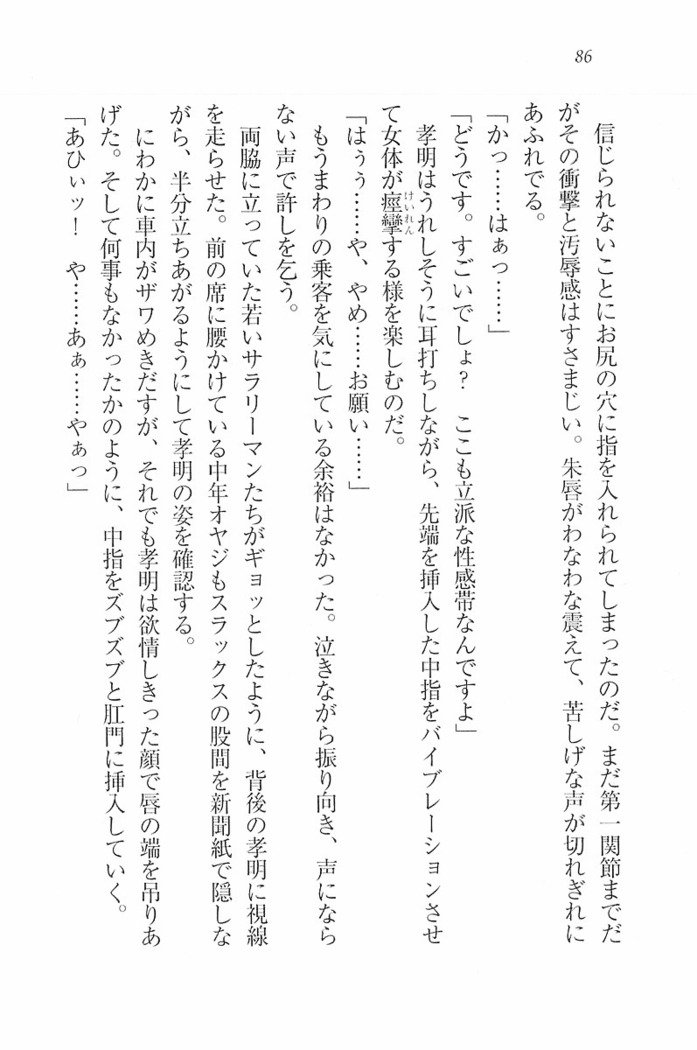 86
信じられないことにお尻の穴に指を入れられてしまったのだ。まだ第一関節までだ
がその衝撃と汚辱感はすさまじい。朱唇がわなわな震えて、苦しげな声が切れぎれに
あふれでる。
「かっ……はぁっ……」
「どうです。すごいでしょ？　ここも立派な性感帯なんですよ」
孝明はうれしそうに耳打ちしながら、先端を挿入した中指をバイブレーションさせ
て女体が痙攣する様を楽しむのだ。
けいれん
「はぅぅ……や、やめ……お願い……」
もうまわりの乗客を気にしている余裕はなかった。泣きながら振り向き、声になら
ない声で許しを乞う。
両脇に立っていた若いサラリーマンたちがギョッとしたように、背後の孝明に視線
を走らせた。前の席に腰かけている中年オヤジもスラックスの股間を新聞紙で隠しな
がら、半分立ちあがるようにして孝明の姿を確認する。
にわかに車内がザワめきだすが、それでも孝明は欲情しきった顔で唇の端を吊りあ
げた。そして何事もなかったかのように、中指をズブズブと肛門に挿入していく。
「あひぃッ！　や……あぁ……やぁっ」